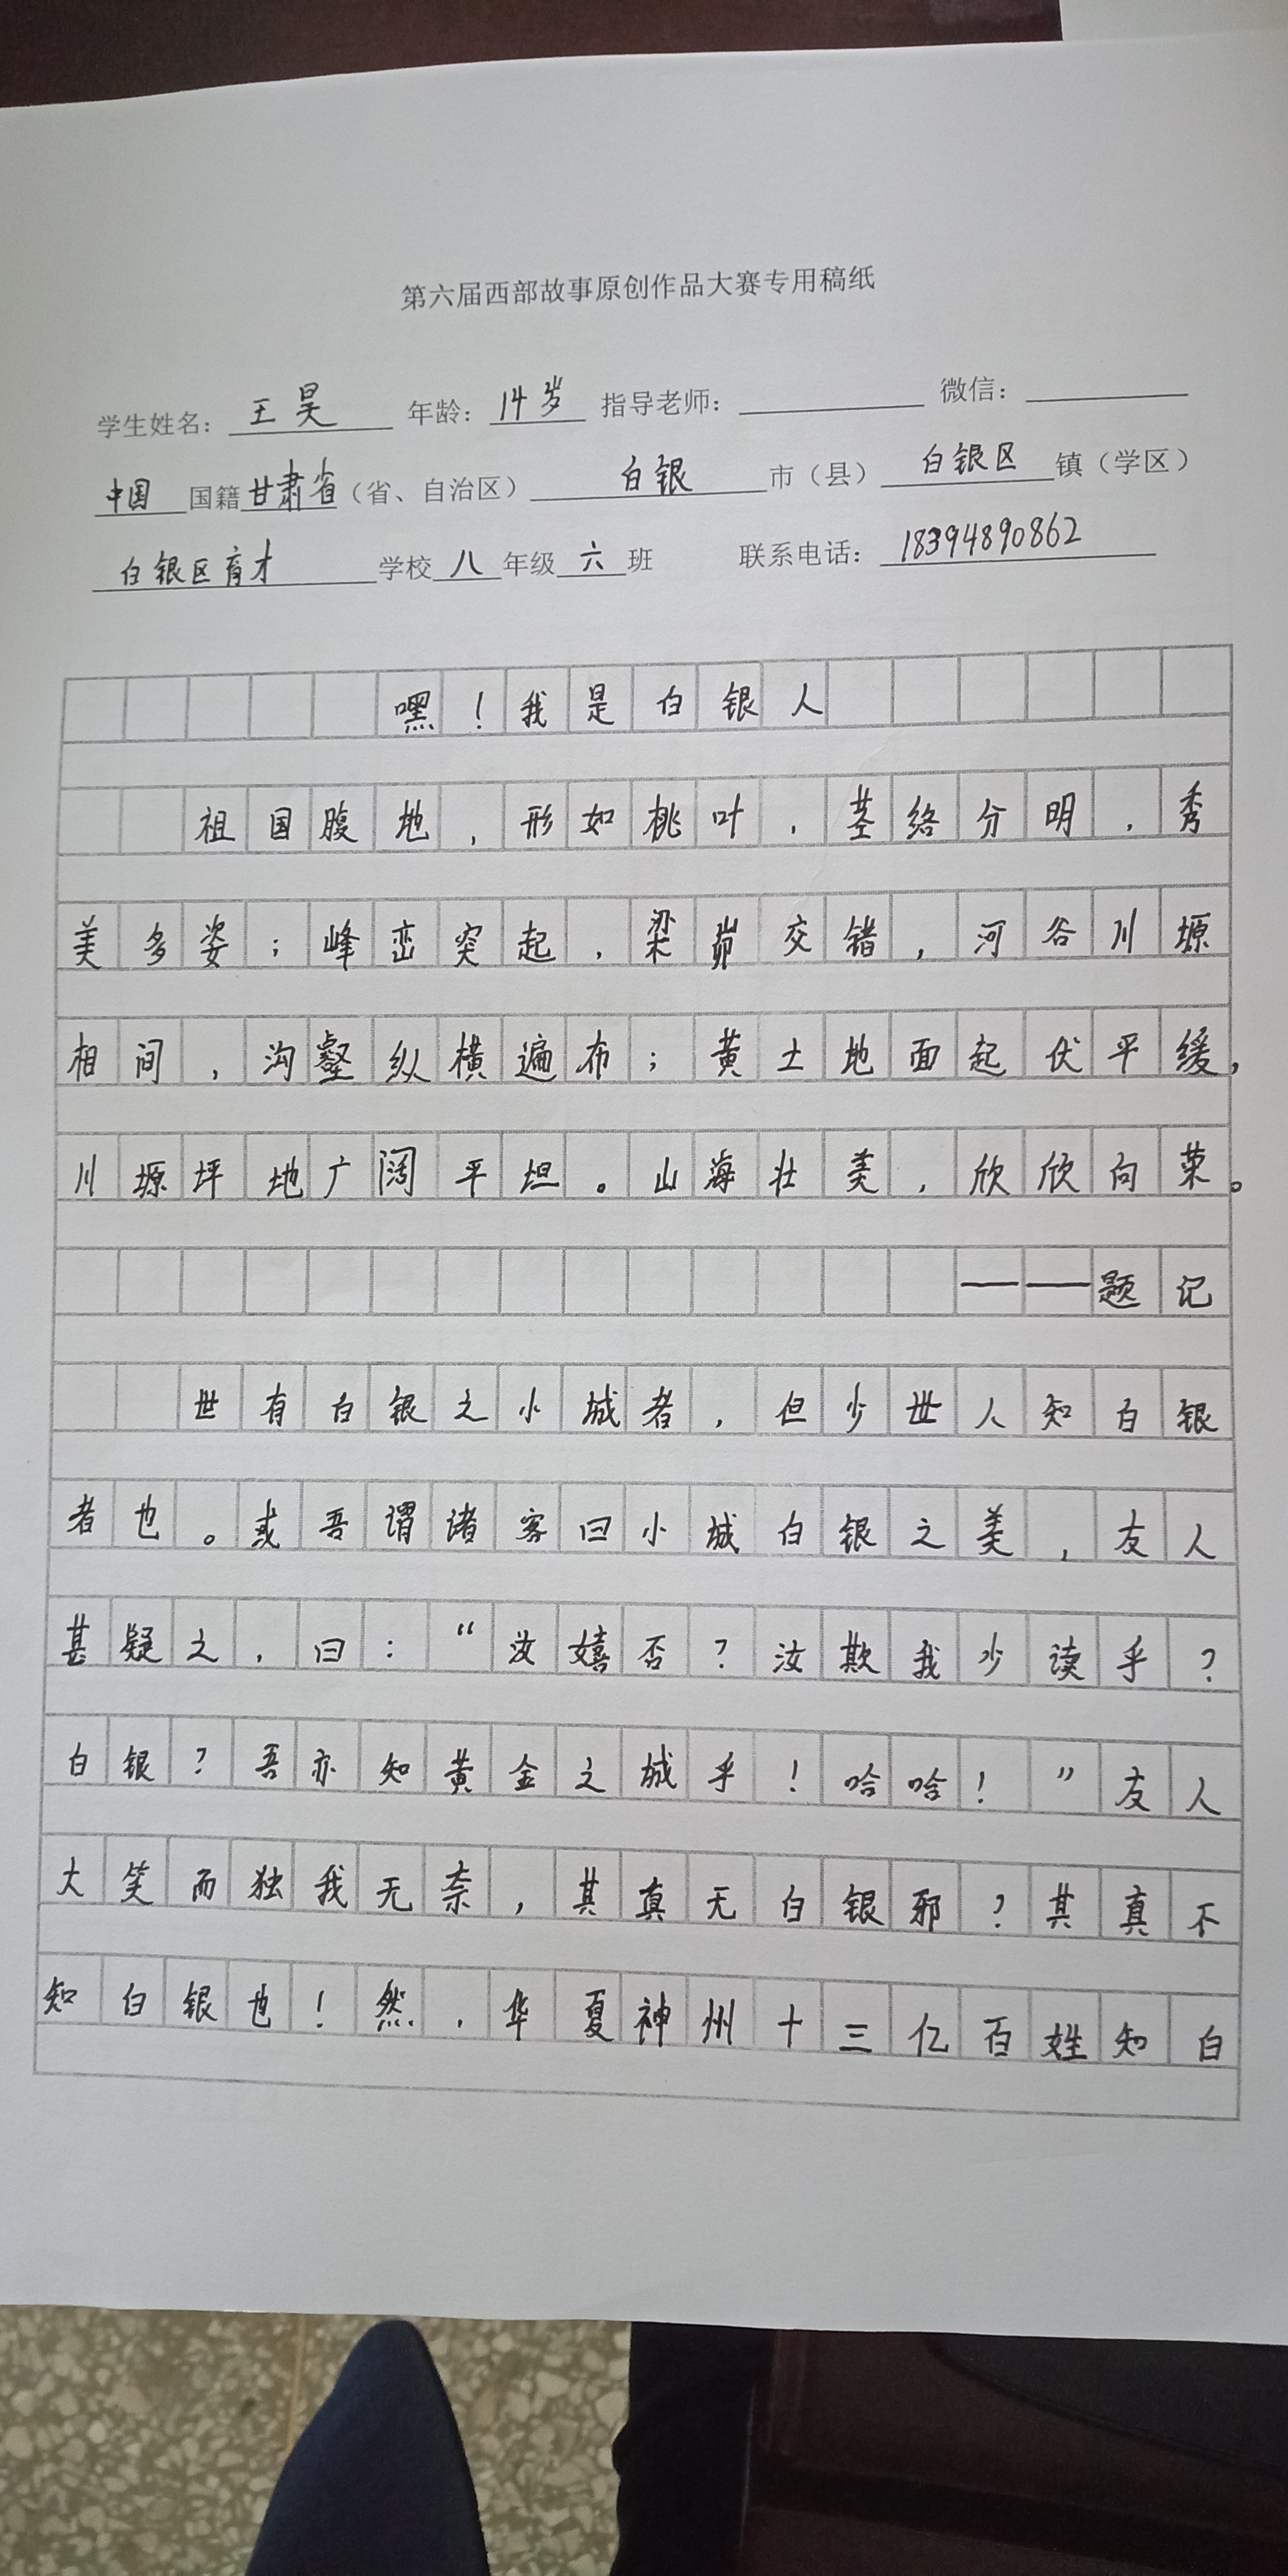 第六届西部故事原创作品大赛专用稿纸
学生姓名：王昊 年龄：14岁 指导老师： 微信：
中国国籍甘肃省（省、自治区）白银市（县）白银区镇（学区）
白银区育才学校八年级六班 联系电话：18394890862
嘿！我是白银人
祖国腹地，形如桃叶，茎络分明，秀
美多姿；峰峦突起，梁峁交错，河谷川塬
相间，沟壑纵横遍布；黄土地面起伏平缓，
川塬坪地广阔平坦。山海壮美，欣欣向荣。
——题记
世有白银之小城者，但少世人知白银
者也。或吾谓诸客曰小城白银之美，友人
甚疑之，曰：“汝嬉否？汝欺我少读乎？
白银？吾亦知黄金之城乎！哈哈！”友人
大笑而独我无奈，其真无白银邪？其真不
知白银也！然，华夏神州十三亿百姓知白